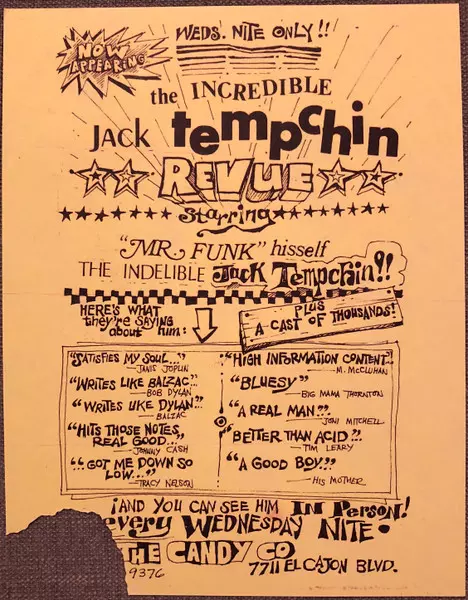 NOW
APPEARING
WEDS. NITE ONLY!!
the INCREDIBLE
JACK tempchin
REVUE
starring
"MR. FUNK" hisself
THE INDELIBLE Jack Tempchin!!
HERE'S WHAT
they're SAYING
about him:
PLUS
A CAST OF THOUSANDS!
"SATISFIES MY SOUL..."
—JANIS JOPLIN
"WRITES LIKE BALZAC..."
—BOB DYLAN
"WRITES LIKE DYLAN..."
—BALZAC
"HITS THOSE NOTES
REAL GOOD...."
—JOHNNY CASH
"...GOT ME DOWN SO
LOW..."
—TRACY NELSON
"HIGH INFORMATION CONTENT"!
—M. McCLUHAN
"BLUESY"
—BIG MAMA THORNTON
"A REAL MAN"?.
—JONI MITCHELL
"BETTER THAN ACID"!.
—TIM LEARY
"A GOOD BOY.."
—HIS MOTHER
¡AND YOU CAN SEE HIM IN PERSON!
every WEDNESDAY NITE •
THE CANDY CO
9376 7711 EL CAJON BLVD.